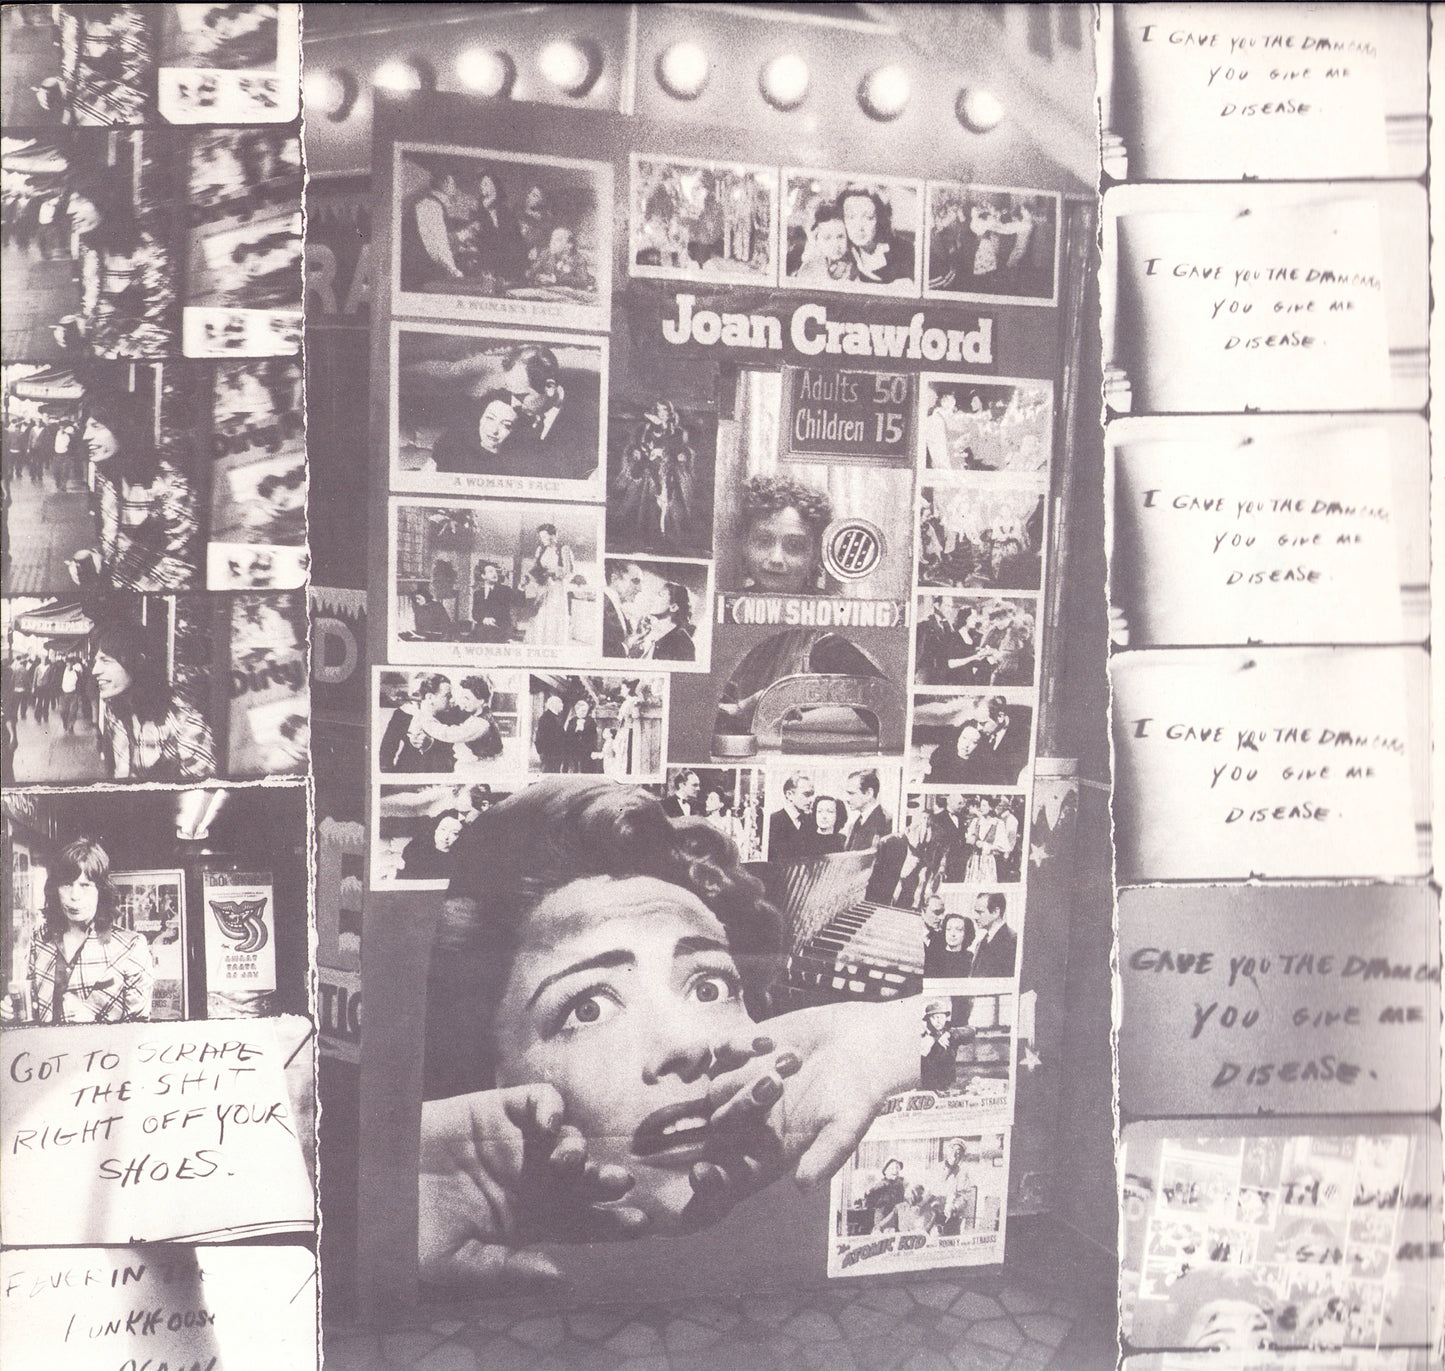 EXPERT REPAIRS
GOT TO SCRAPE
THE SHIT
RIGHT OFF YOUR
SHOES.
FEVER IN THE
FUNKHOUSE
AGAIN
A WOMAN'S FACE
A WOMAN'S FACE
"A WOMAN'S FACE"
Joan Crawford
Adults 50
Children 15
(NOW SHOWING)
TICKETS
ATOMIC KID
MICKEY ROONEY
STRAUSS
The ATOMIC KID
MICKEY ROONEY
STRAUSS
I GAVE YOU THE DIAMONDS
YOU GIVE ME
DISEASE.
I GAVE YOU THE DIAMONDS
YOU GIVE ME
DISEASE.
I GAVE YOU THE DIAMONDS
YOU GIVE ME
DISEASE.
I GAVE YOU THE DIAMONDS
YOU GIVE ME
DISEASE.
GAVE YOU THE DIAMON
YOU GIVE ME
DISEASE.